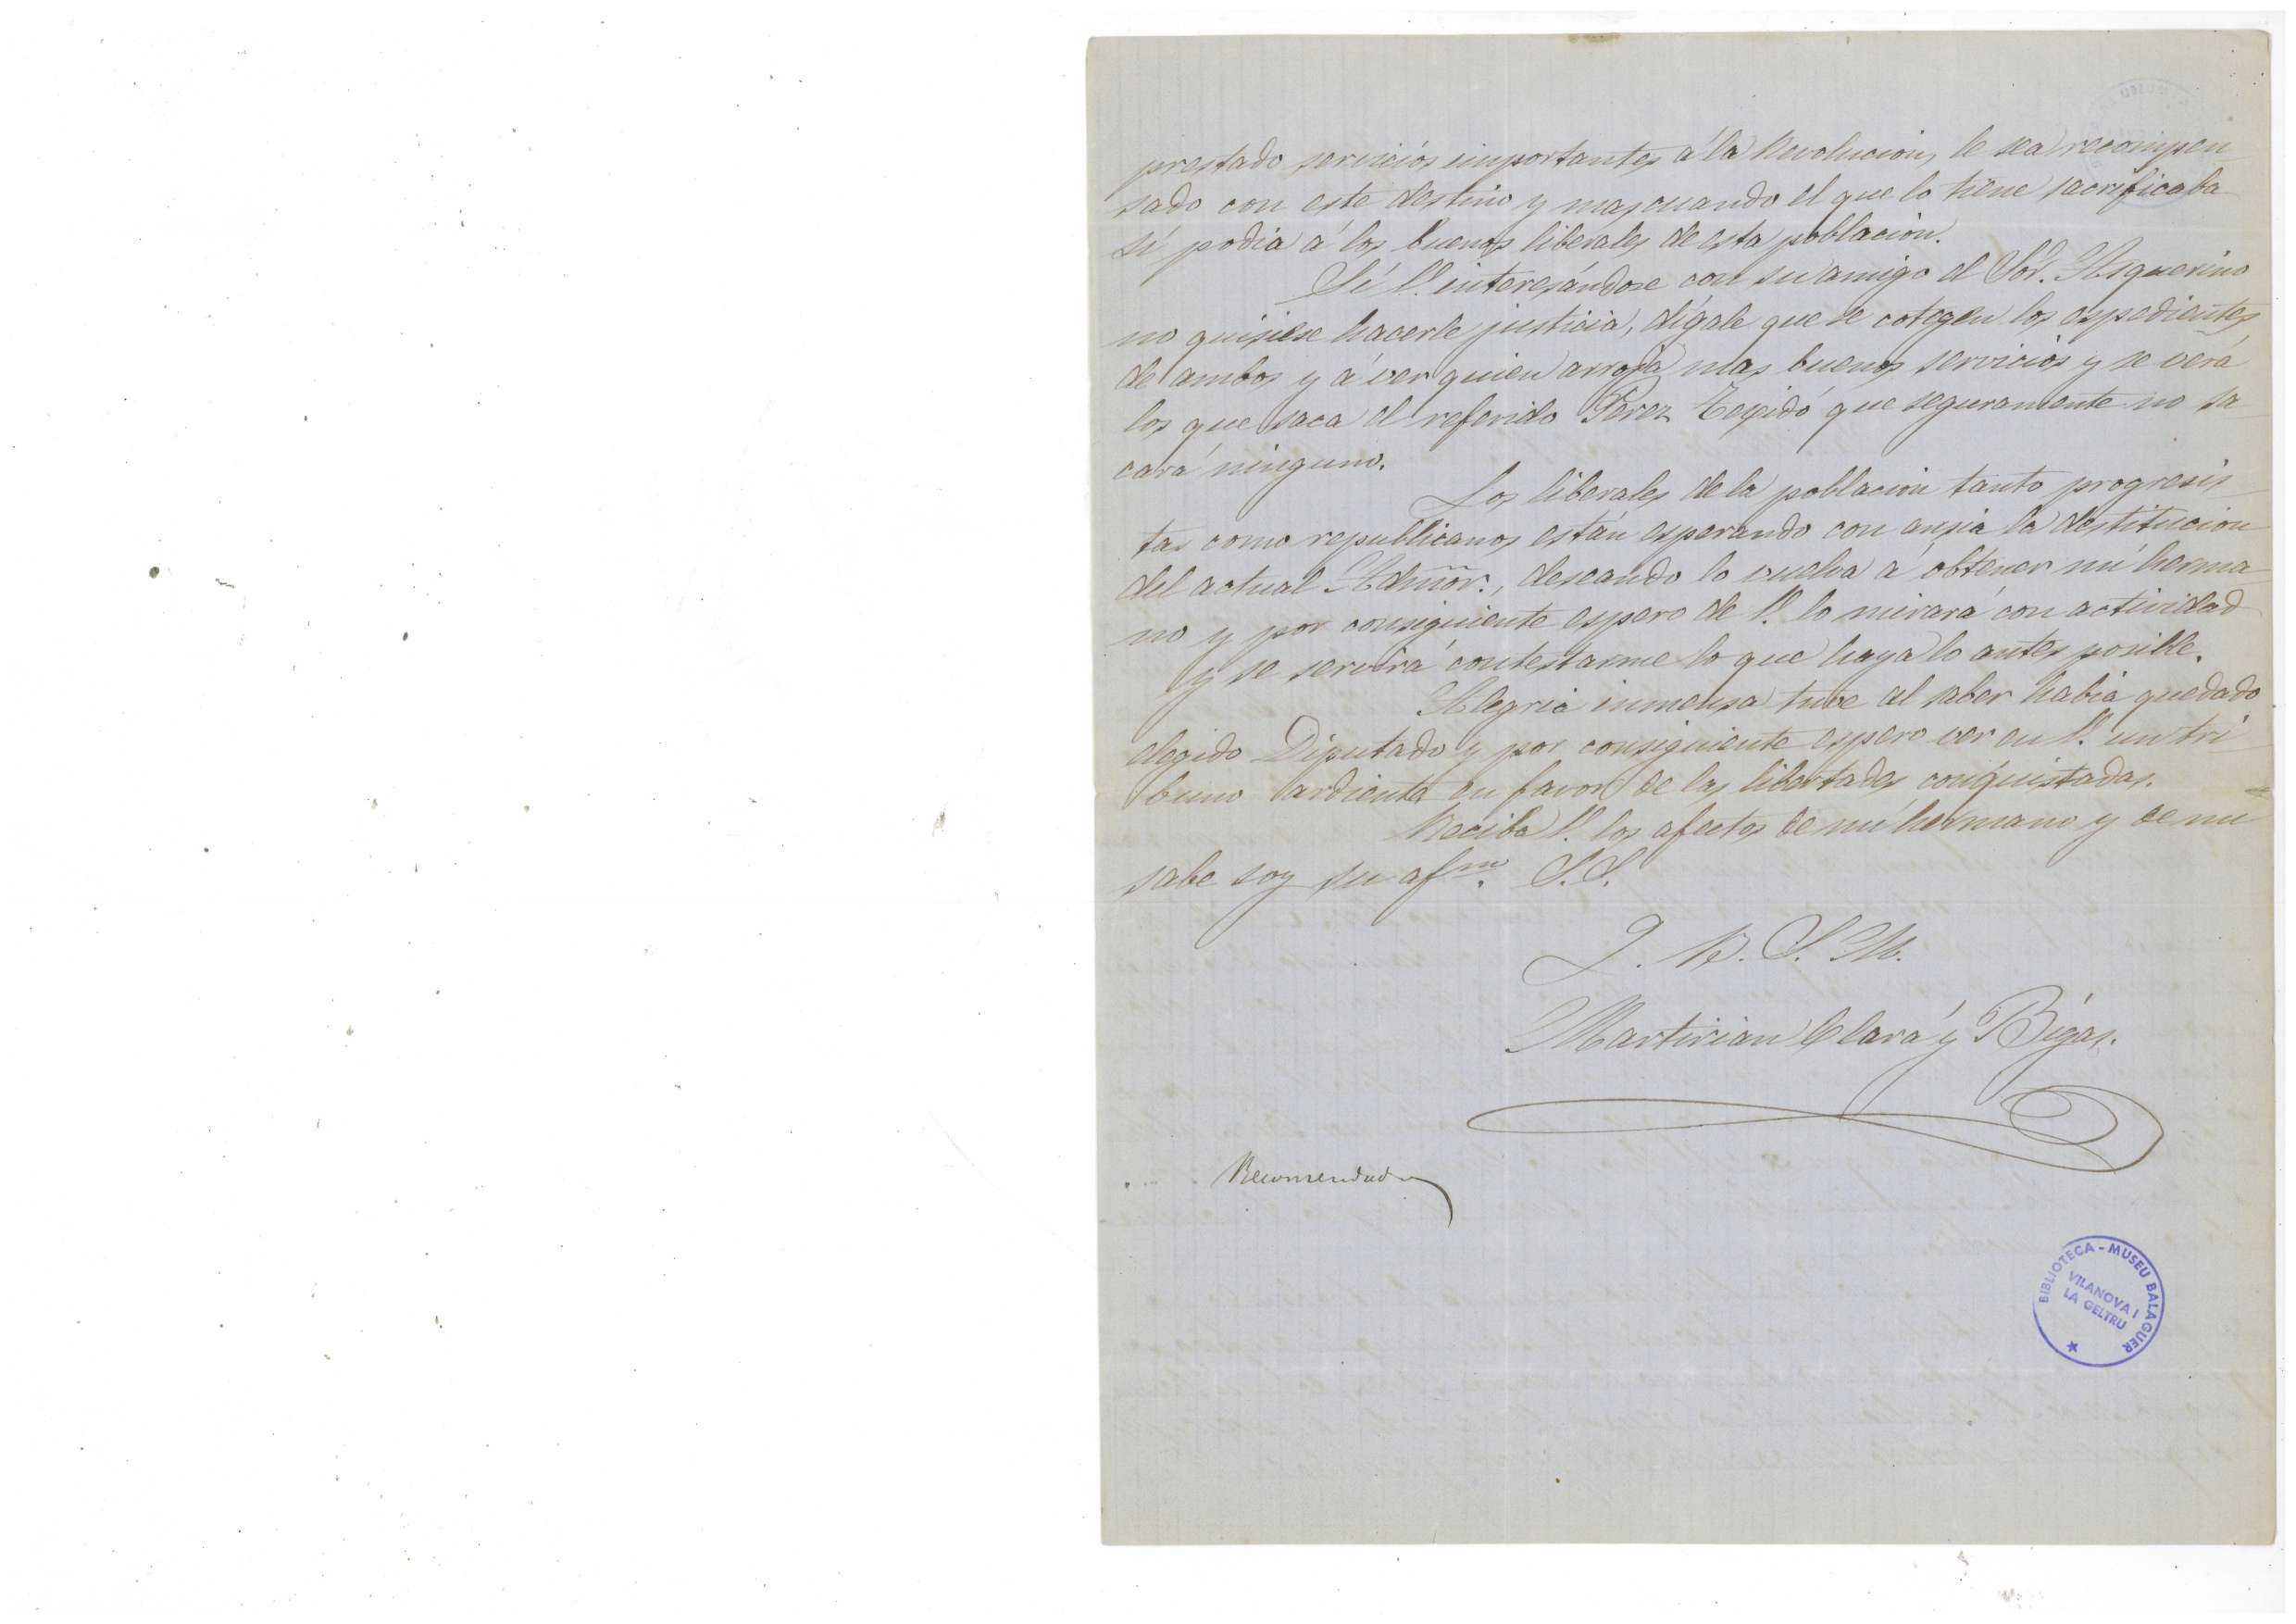 prestado servicios importantes á la Revolucion, le sea recompen
sado con este destino y mas cuando el que lo tiene sacrificaba
si podia á los buenos liberales de esta poblacion.
Si V. interesándose con su amigo el Sór. Asquerino
no quisiese hacerle justicia, dígale que se cotegen los espedientes
de ambos y á ver quien arroja mas buenos servicios y se verá
los que saca el referido Perez Texidó que seguramente no sa
cará ninguno.
Los liberales de la poblacion tanto progresis
tas como republicanos están esperando con ansia la destitucion
del actual Admõr., deseando lo vuelva á obtener mi herma
no y por consiguiente espero de V. lo mirará con actividad
y se servirá contestarme lo que haya lo antes posible.
Alegria inmensa tuve al saber habia quedado
elegido Diputado y por consiguiente espero ver en V. un tri
buno ardiente en favor de las libertades conquistadas.
Reciba V. los afectos de mi hermano y de mi
sabe soy su afmo. S.S.
Q. B. S. M.
Martirian Clará y Bigas.
Recomendado
BIBLIOTECA - MUSEU BALAGUER
VILANOVA I
LA GELTRU